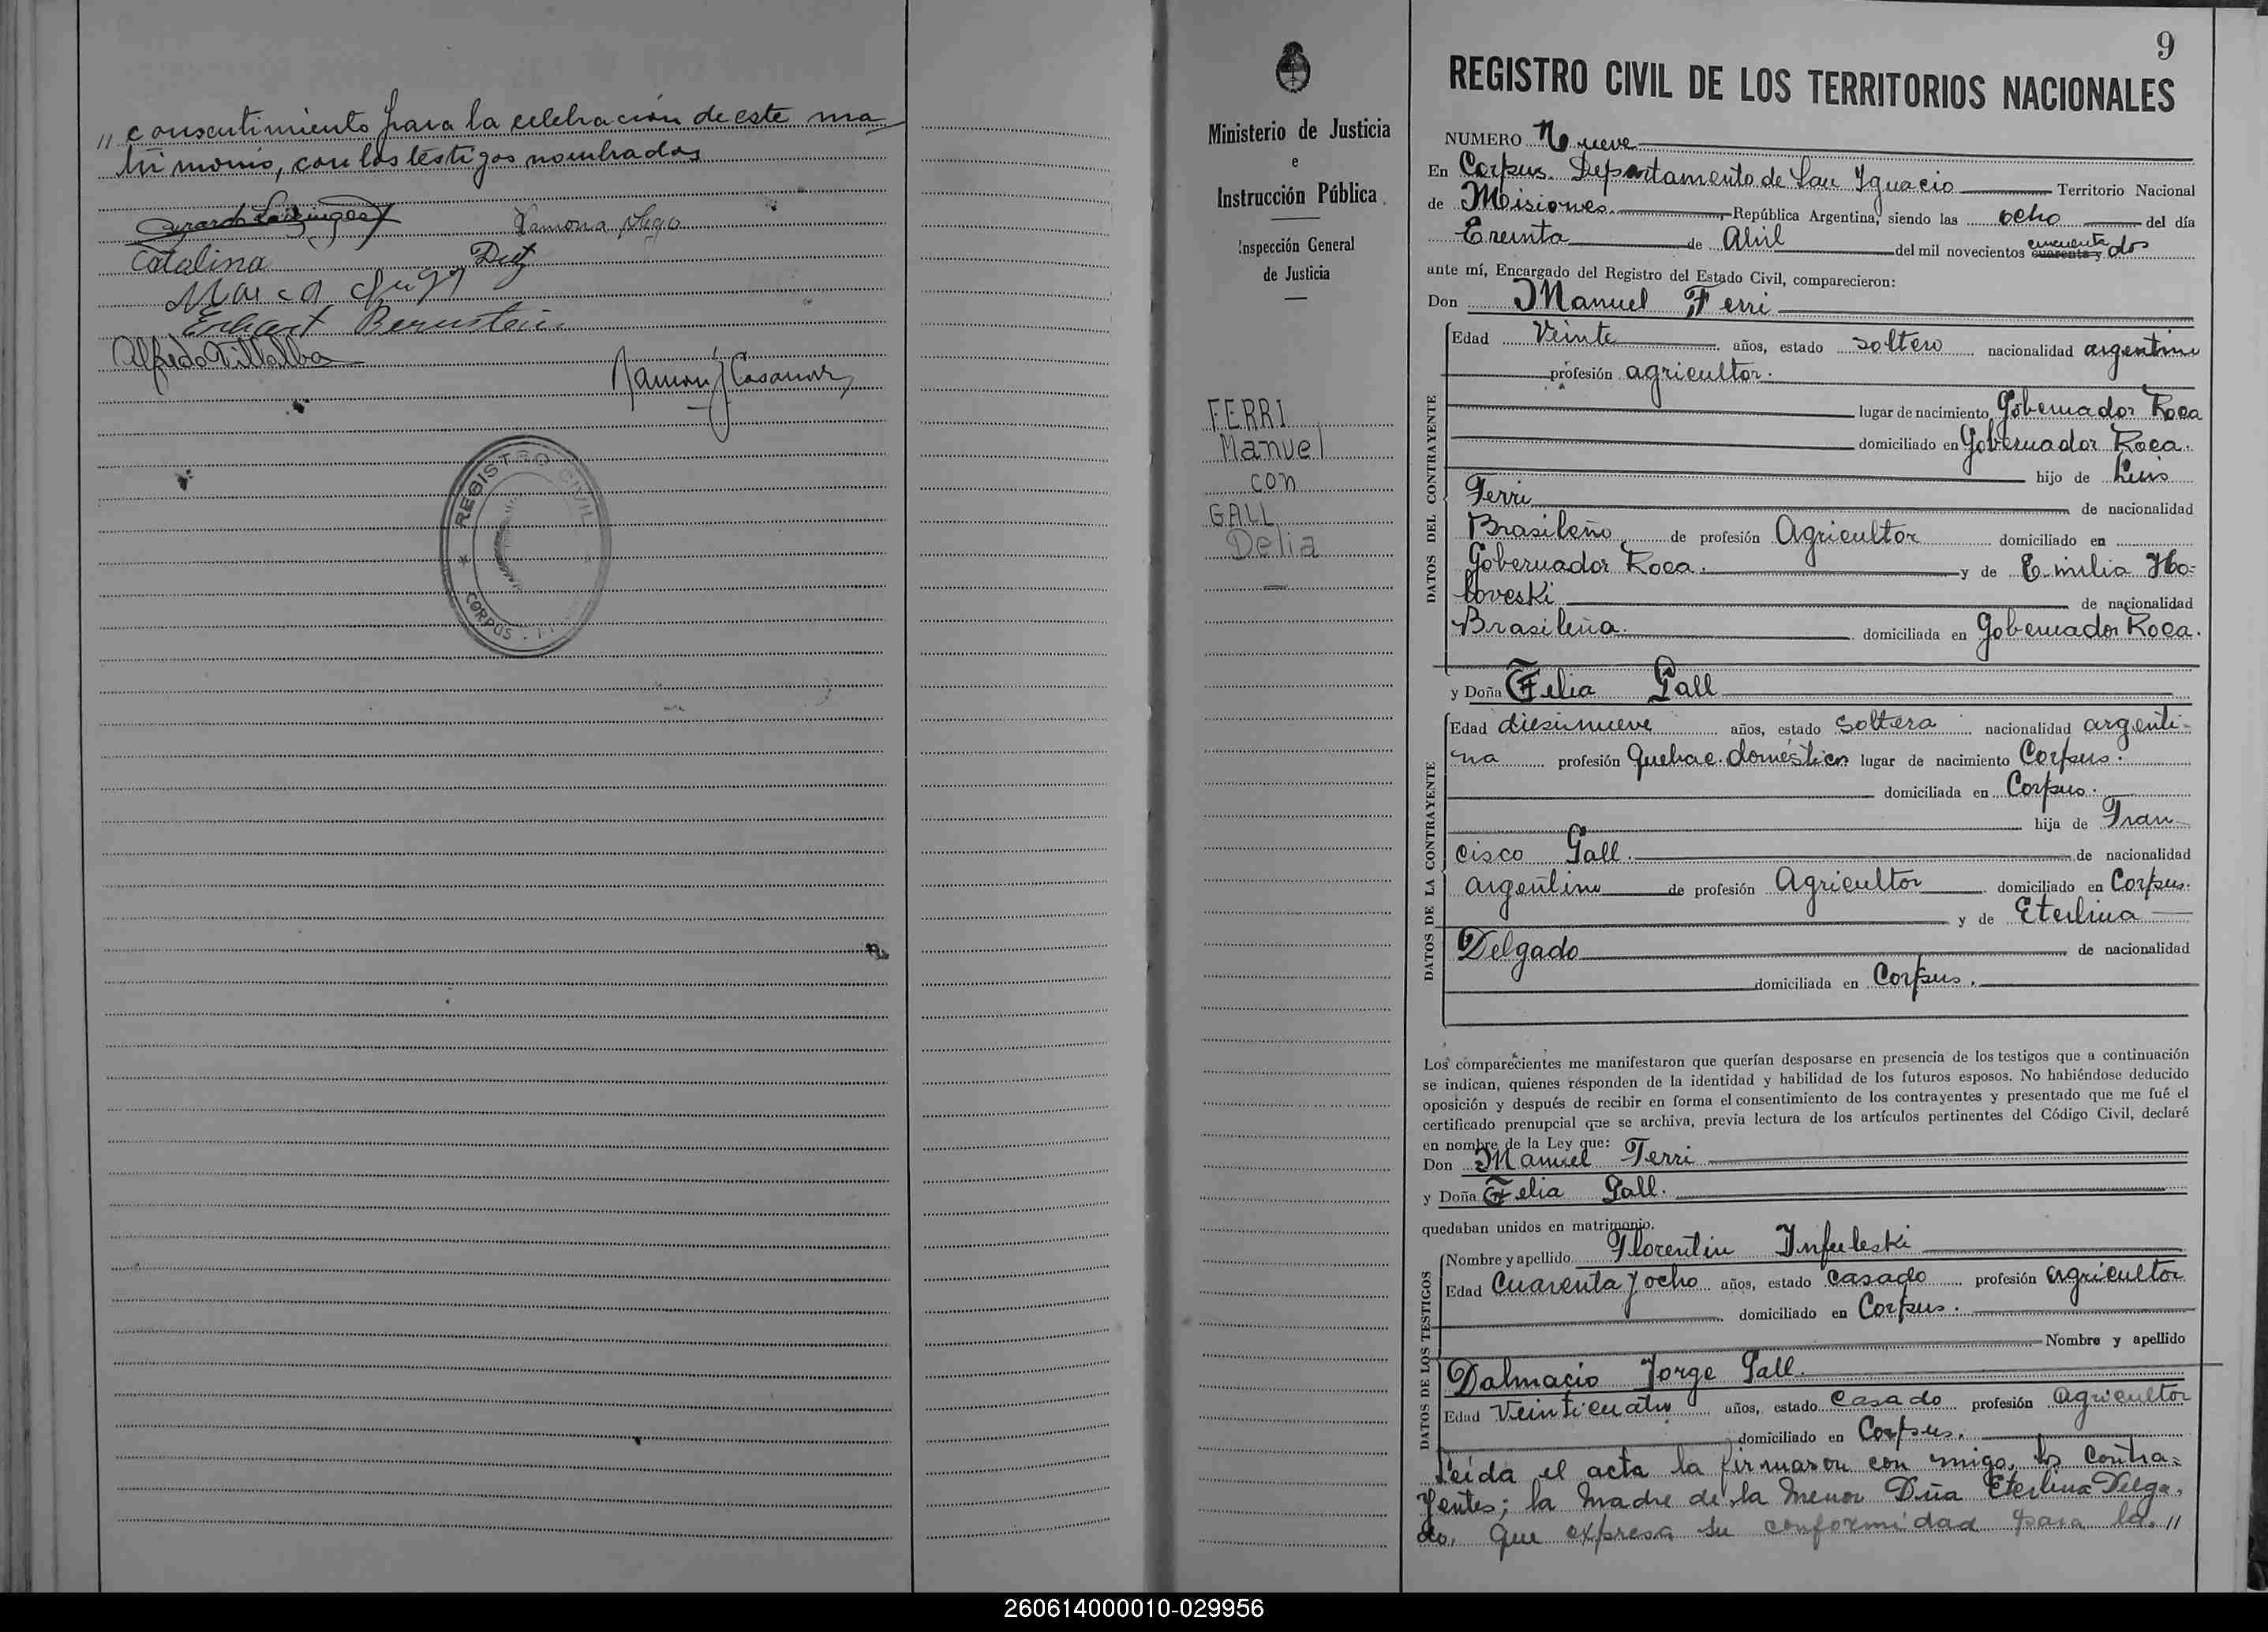 " consentimiento para la celebración de este ma-
trimonio, con los testigos nombrados
Ramona Vega
Catalina Dietz
Erhart Bernstein
Alfredo Villalba
Ramón J Casanova
REGISTRO CIVIL
CORPUS
9
REGISTRO CIVIL DE LOS TERRITORIOS NACIONALES
Ministerio de Justicia
e
Instrucción Pública
Inspección General
de Justicia
FERRI
Manuel
con
GALL
Delia
NUMERO Nueve
En Corpus. Departamento de San Ignacio Territorio Nacional
de Misiones. República Argentina, siendo las ocho del día
Treinta de Abril del mil novecientos cuarenta y cincuenta dos
ante mí, Encargado del Registro del Estado Civil, comparecieron:
Don Manuel Ferri
DATOS DEL CONTRAYENTE
Edad Veinte años, estado soltero nacionalidad argentino
profesión agricultor.
lugar de nacimiento Gobernador Roca
domiciliado en Gobernador Roca.
hijo de Luis
Ferri de nacionalidad
Brasileño de profesión Agricultor domiciliado en
Gobernador Roca. y de Emilia Ho-
loveski de nacionalidad
Brasileña. domiciliada en Gobernador Roca.
y Doña Felia Gall
DATOS DE LA CONTRAYENTE
Edad diesinueve años, estado soltera nacionalidad argenti-
na profesión Quehac. domésticos lugar de nacimiento Corpus.
domiciliada en Corpus.
hija de Fran-
cisco Gall. de nacionalidad
argentino de profesión Agricultor domiciliado en Corpus.
y de Eterlina
Delgado de nacionalidad
domiciliada en Corpus.
Los comparecientes me manifestaron que querían desposarse en presencia de los testigos que a continuación
se indican, quienes responden de la identidad y habilidad de los futuros esposos. No habiéndose deducido
oposición y después de recibir en forma el consentimiento de los contrayentes y presentado que me fué el
certificado prenupcial que se archiva, previa lectura de los artículos pertinentes del Código Civil, declaré
en nombre de la Ley que:
Don Manuel Ferri
y Doña Felia Gall.
quedaban unidos en matrimonio.
DATOS DE LOS TESTIGOS
Nombre y apellido Florentin Infuleski
Edad Cuarenta y ocho años, estado casado profesión agricultor
domiciliado en Corpus.
Nombre y apellido
Dalmacio Jorge Gall.
Edad Veinticuatro años, estado casado profesión agricultor
domiciliado en Corpus.
Leída el acta la firmaron con migo, los contra-
yentes; la Madre de la menor Dña Eterlina Delga-
do, que expresa su conformidad para la "
260614000010-029956